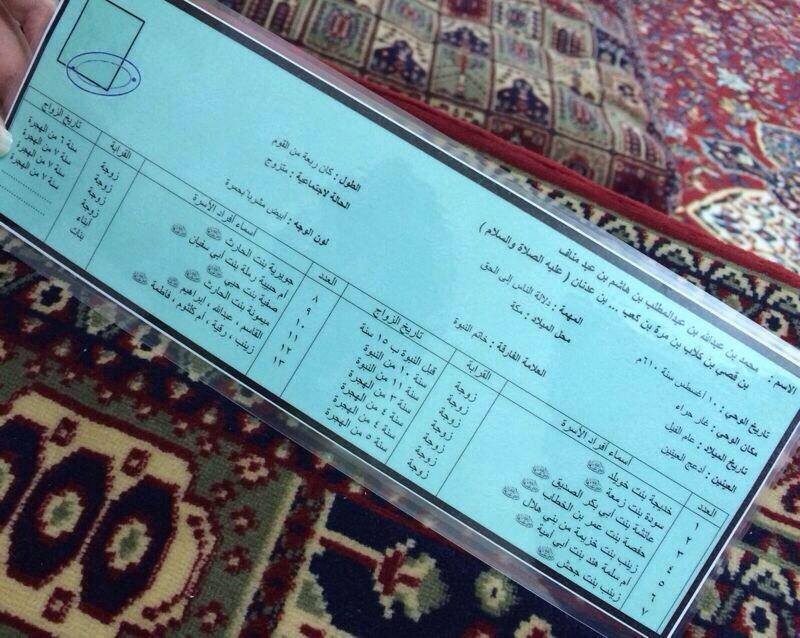 الاسم : محمد بن عبدالله بن عبدالمطلب بن هاشم بن عبد مناف
بن قصي بن كلاب بن مرة بن كعب ... بن عدنان ( عليه الصلاة والسلام )
تاريخ الوحي : ١٠ اغسطس سنة ٦١٠م
المهمة : دلالة الناس إلى الحق
الطول : كان ربعة من القوم
مكان الوحي : غار حراء
محل الميلاد : مكة
الحالة لاجتماعية : متزوج
تاريخ الميلاد : عام الفيل
العينين : ادعج العينين
العلامة الفارقة : خاتم النبوة
لون الوجه : أبيض مشربا بحمرة
العدد أسماء أفراد الأسرة القرابة تاريخ الزواج
١ خديجة بنت خويلد زوجة قبل النبوة ب ١٥ سنة
٢ سودة بنت زمعة زوجة سنة ١٠ من النبوة
٣ عائشة بنت أبي بكر الصديق زوجة سنة ١١ من النبوة
٤ حفصة بنت عمر بن الخطاب زوجة سنة ٣ من الهجرة
٥ زينب بنت خزيمة من بني هلال زوجة سنة ٤ من الهجرة
٦ ام سلمة هند بنت أبي امية زوجة سنة ٤ من الهجرة
٧ زينب بنت جحش زوجة سنة ٥ من الهجرة
العدد أسماء أفراد الأسرة القرابة تاريخ الزواج
٨ جويرية بنت الحارث زوجة سنة ٦ من الهجرة
٩ ام حبيبة رملة بنت أبي سفيان زوجة سنة ٧ من الهجرة
١٠ صفية بنت حيي زوجة سنة ٧ من الهجرة
١١ ميمونة بنت الحارث زوجة سنة ٧ من الهجرة
١٢ القاسم ، عبدالله ، إبراهيم أبناء ................
١٣ زينب ، رقية ، أم كلثوم ، فاطمة بنات ................